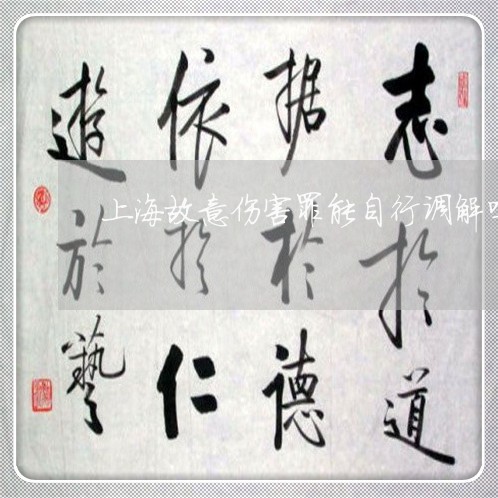 志於道
据於德
依於仁
遊於藝
上海故意伤害罪能自行调解